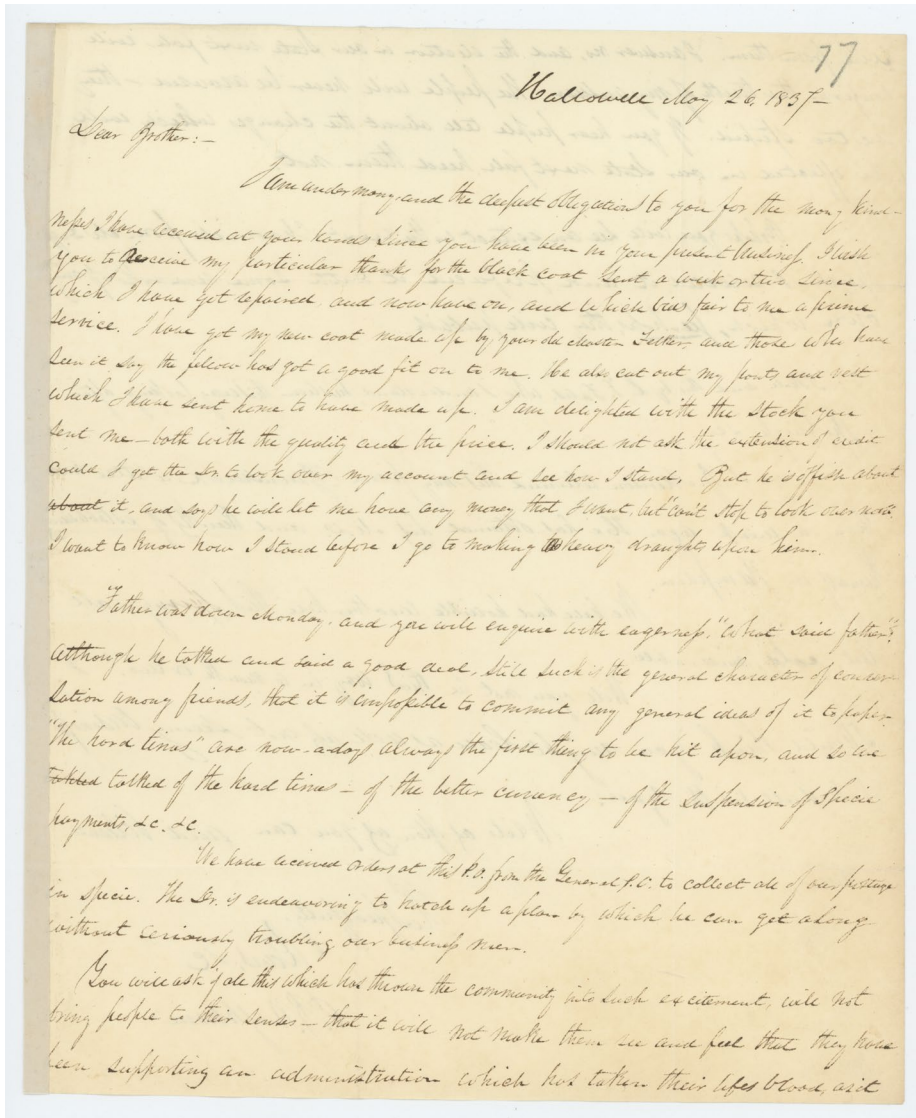 77
Hallowell May 26, 1837—
Dear Brother:—
I am under many and the deepest obligations to you for the many kind-
nesses I have received at your hands since you have been in your present business. I wish
you to receive my particular thanks for the black coat sent a week or two since,
which I have got repaired and now have on, and which bids fair to me a prime
service. I have got my new coat made up by your old Master Felker and those who have
seen it say the fellow has got a good fit on to me. He also cut out my pants and vest
which I have sent home to have made up. I am delighted with the stock you
sent me—both with the quality and the price. I should not ask the extension of credit
could I get the Dr. to look over my account and see how I stand. But he is offish about
about it, and says he will let me have any money that I want, but "can't stop to look over now."
I want to know how I stand before I go to making heavy draughts upon him.
Father was down Monday, and you will enquire with eagerness, "What said father"?
Although he talked and said a good deal, still such is the general character of conver-
sation among friends, that it is impossible to commit any general ideas of it to paper.
"The hard times" are now-a-days always the first thing to be hit upon, and so we
talked of the hard times — of the better currency — of the suspension of Specie
payments, &c. &c.
We have received orders at this P.O. from the General P.O. to collect all of our postage
in specie. The Dr. is endeavoring to hatch up a plan by which he can get along
without seriously troubling our business men.
You will ask if all this which has thrown the community into such excitement, will not
bring people to their senses — that it will not make them see and feel that they have
been supporting an administration which has taken their lifes blood, as it